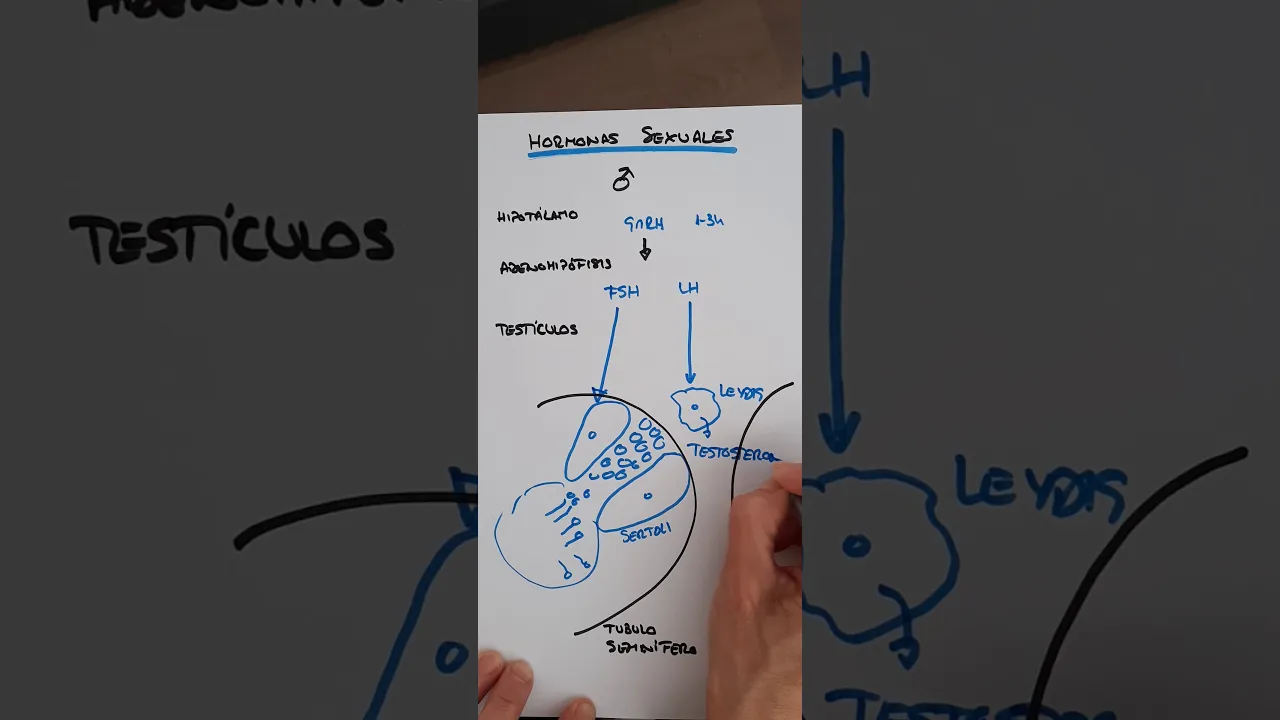 HORMONAS SEXUALES
♂
HIPOTÁLAMO GnRH 1-3h
ADENOHIPÓFISIS
FSH LH
TESTÍCULOS
LEYDIG
TESTOSTERON
SERTOLI
TUBULO
SEMINÍFERO